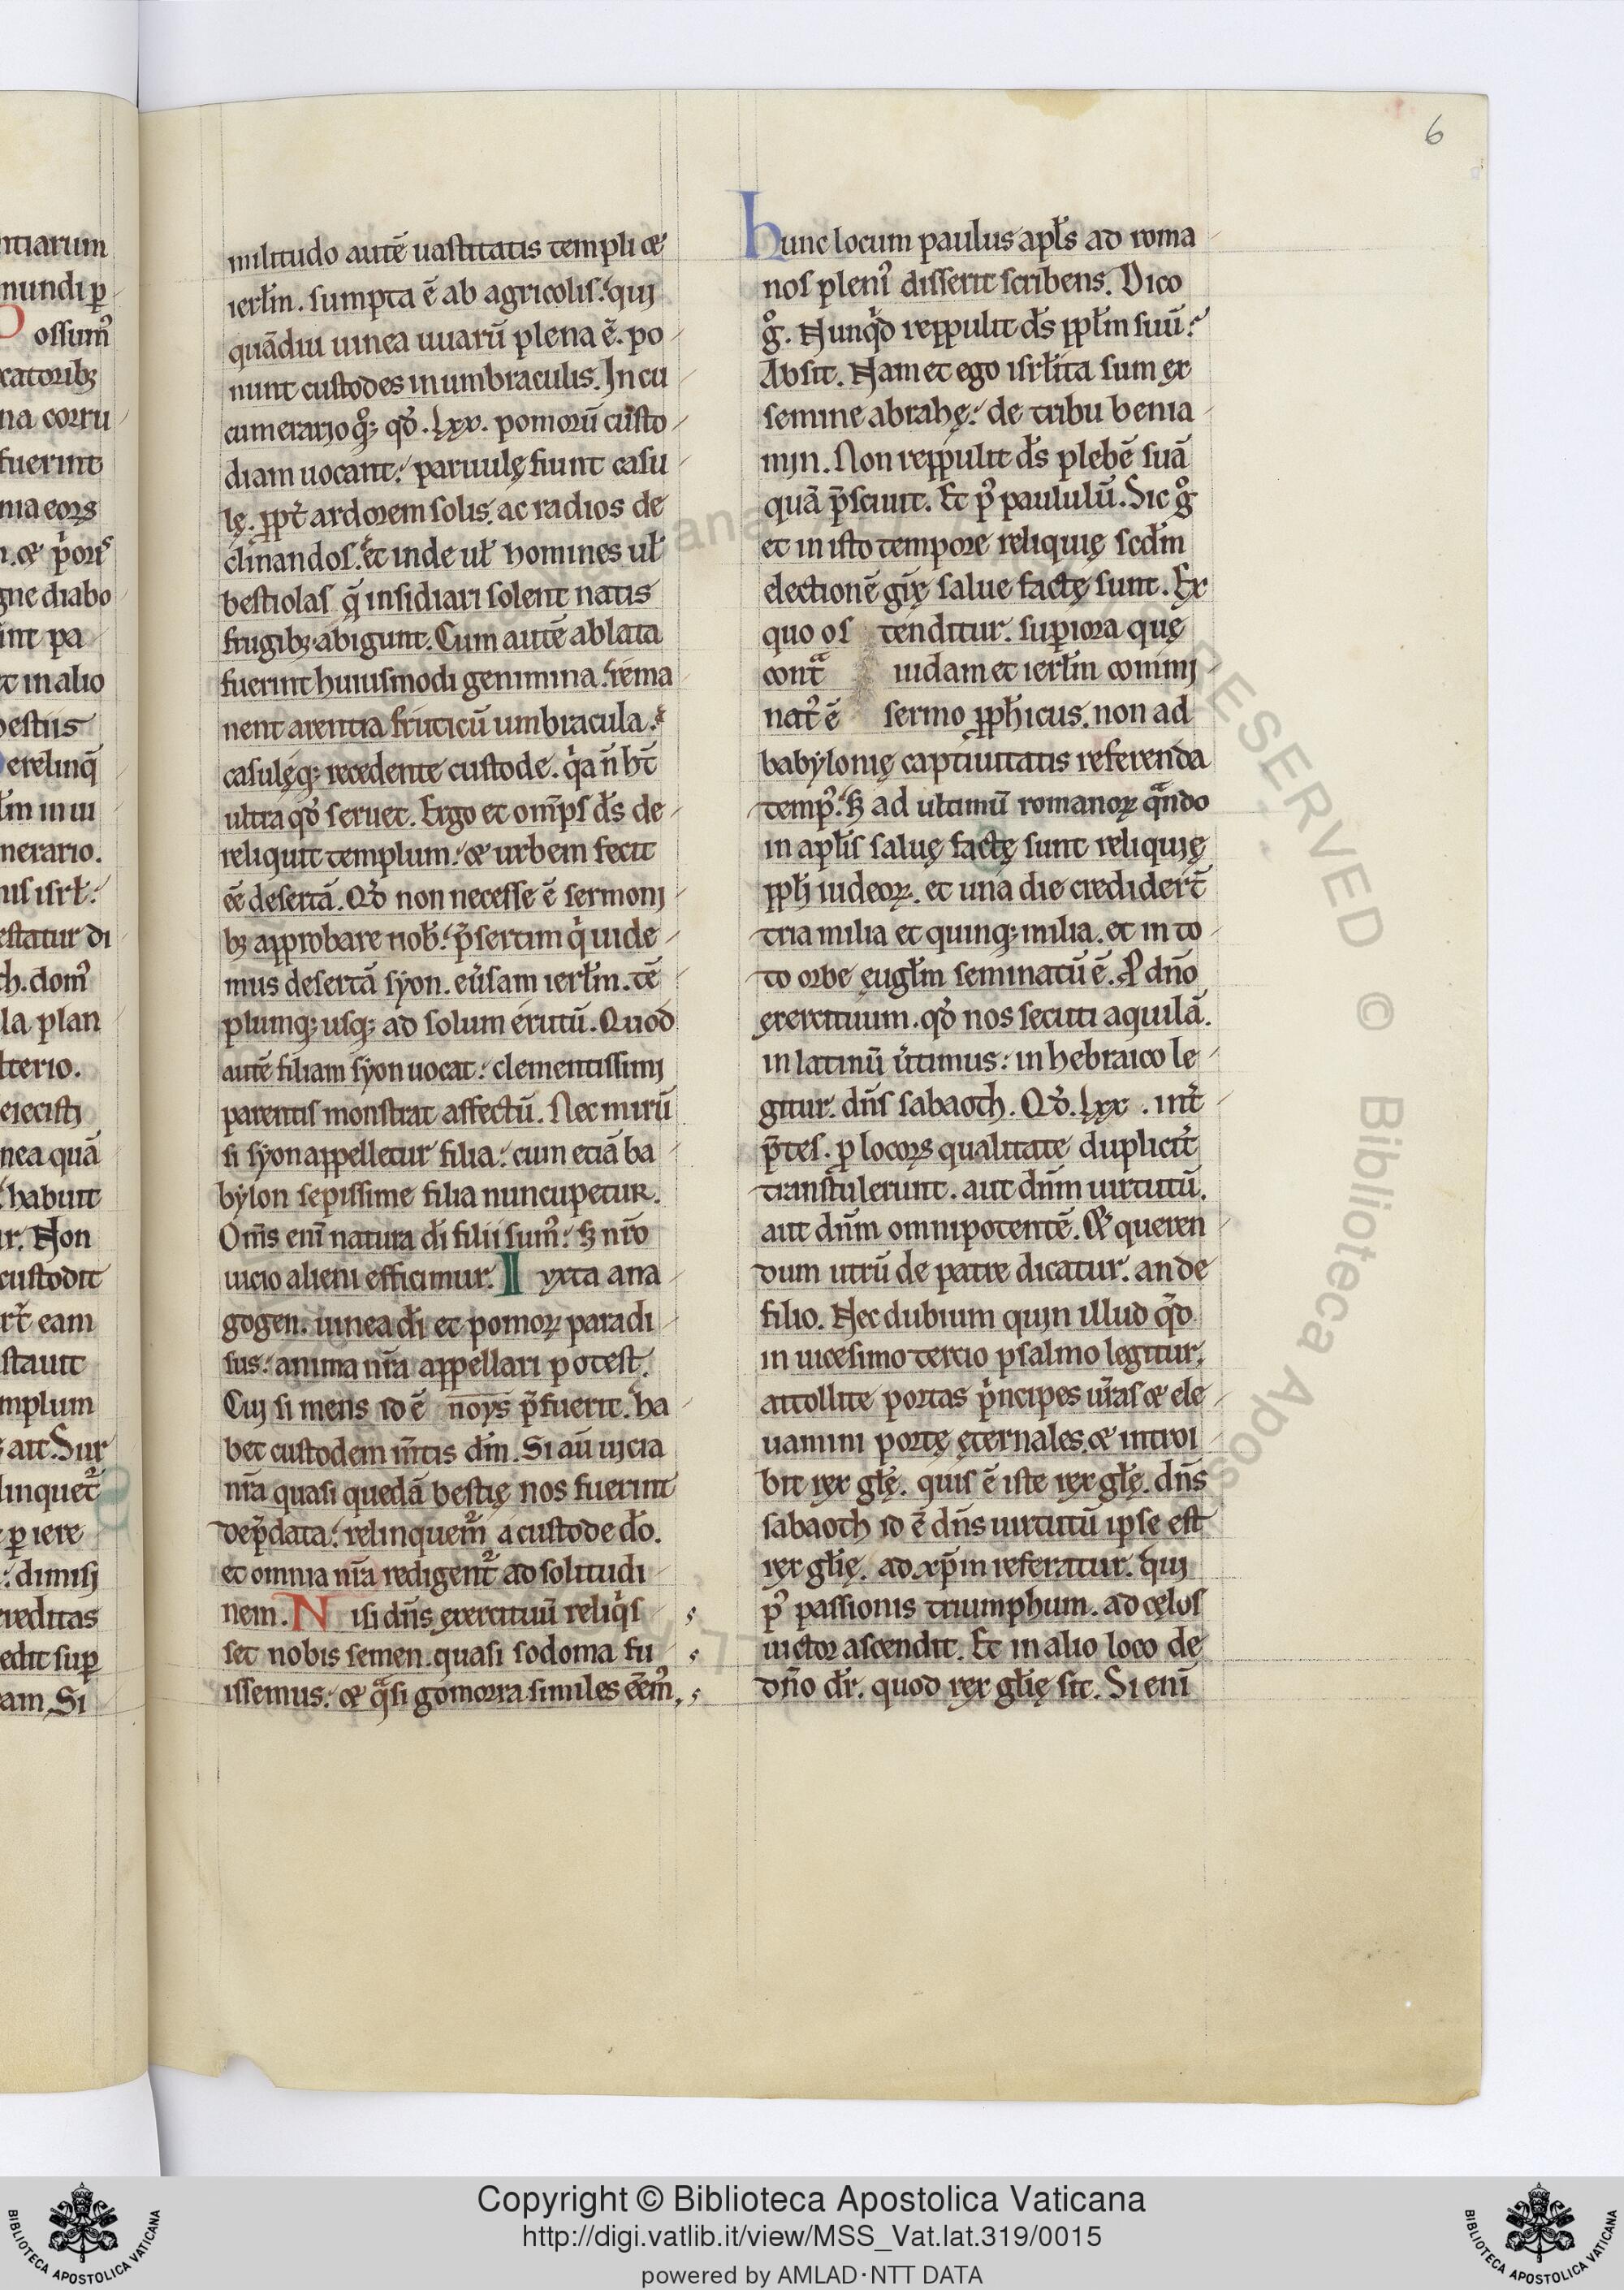 6
ntiarum
mundi p̱
ossum᷒
catorib;
na corru
fuerint
nia eorꝝ
gne diabo
int pa
t in alio
bestiis
erelinq̄
nerario.
nis isrł:
estatur di
th. dom᷒
la plan
lterio.
eiecisti
nea quā
habuit
r. Non
custodit
rt̄ eam
stauit
mplum
ait. Sur
linquet᷑
ꝑ iere
: dimisi
ereditas
edit suꝑ
eam. Si
militudo autē uastitatis templi &
ierłm. sumpta ē ab agricolis: qui
quādiu uinea uuarū plena ē. po
nunt custodes in umbraculis. In cu
cumerario q̊; qđ .lxx. pomorū custo
diam uocant: paruulę fiunt casu
lę. ꝓpt̄ ardorem solis. ac radios de
clinandos. et inde uł homines uł
bestiolas q̨ insidiari solent natis
frugib; abigunt. Cum autē ablata
fuerint huiusmodi genimina: rema
nent arentia fruticū umbracula:
casulęq; recedente custode. q̇a n̄ ht̄
ultra qđ seruet. Ergo et omp̄s d̄s de
reliquit templum: & urbem fecit
eē desertā. Qđ non necesse ē sermoni
b; approbare nob̄: p̄sertim q̇ uide
mus desertā syon. eu̓sam ierłm. tē
plumq; usq; ad solum erutū. Quod
autē filiam syon uocat: clementissimi
parentis monstrat affectū. Nec mirū
si syon appelletur filia: cum etiā ba
bylon sepissime filia nuncupetur.
Om̄s eni̅ natura dī filii sum᷒: s; nr̄o
uicio alieni efficimur. I yxta ana
gogen. uinea dī et pomoꝝ paradi
sus: anima nr̄a appellari potest.
Cui si mens id ē noys p̄fuerit. ha
bet custodem m̄tis dm̄. Si aū uicia
nr̄a quasi quedā bestię nos fuerint
dep̄data: relinquem᷑ a custode dō.
et omnia nr̄a redigent᷑ ad solitudi
nem. N isi dn̄s exercituū reliq̇s
set nobis semen. quasi sodoma fu
issemus: & qͣsi gomorra similes eēm᷒.
hunc locum paulus apłs ad roma
nos pleni᷒ disserit scribens. Dico
g̊. Nunq̇d reppulit d̄s ppłm suū?
Absit. Nam et ego isrłita sum ex
semine abrahę: de tribu benia
min. Non reppulit d̄s plebē suā
quā p̄sciuit. Et p᷒ paululū. Sic g̊
et in isto tempore reliquię scd̄m
electionē gr̄ę salue factę sunt. Ex
quo os tenditur. suꝑiora quę
contͣ iudam et ierłm commi
nat᷑ ē sermo ꝓph̄icus. non ad
babylonię captiuitatis referenda
temp᷒: s; ad ultimū romanoꝝ qͣndo
in apłis saluę factę sunt reliquię
ppłi iudeoꝝ. et una die credidert̄
tria milia et quinq; milia. et in to
to orbe eugłm seminatū ē. P dn̄o
exercituum. qđ nos secuti aquilā.
in latinū u̓timus: in hebraico le
gitur. dn̄s sabaoth. Qđ .lxx. int̄
p̄tes. ꝑ locorꝝ qualitate duplicit̄
transtulerunt. aut dn̄m uirtutū.
aut dn̄m omnipotentē. Et queren
dum utrū de patre dicatur. an de
filio. Nec dubium quin illud q̇d
in uicesimo tercio psalmo legitur.
attollite portas p̓ncipes ur̄as & ele
uamini portę ęternales. & introi
bit rex głę. quis ē iste rex głę. dn̄s
sabaoth id ē dn̄s uirtutū ipse est
rex głię. ad xp̄m referatur. qui
p᷒ passionis triumphum. ad cęlos
uictor ascendit. Et in alio loco de
dn̄o dr̄. quod rex głię sit. Si eni̅
Copyright © Biblioteca Apostolica Vaticana
http://digi.vatlib.it/view/MSS_Vat.lat.319/0015
powered by AMLAD·NTT DATA
BIBLIOTECA APOSTOLICA VATICANA
BIBLIOTECA APOSTOLICA VATICANA